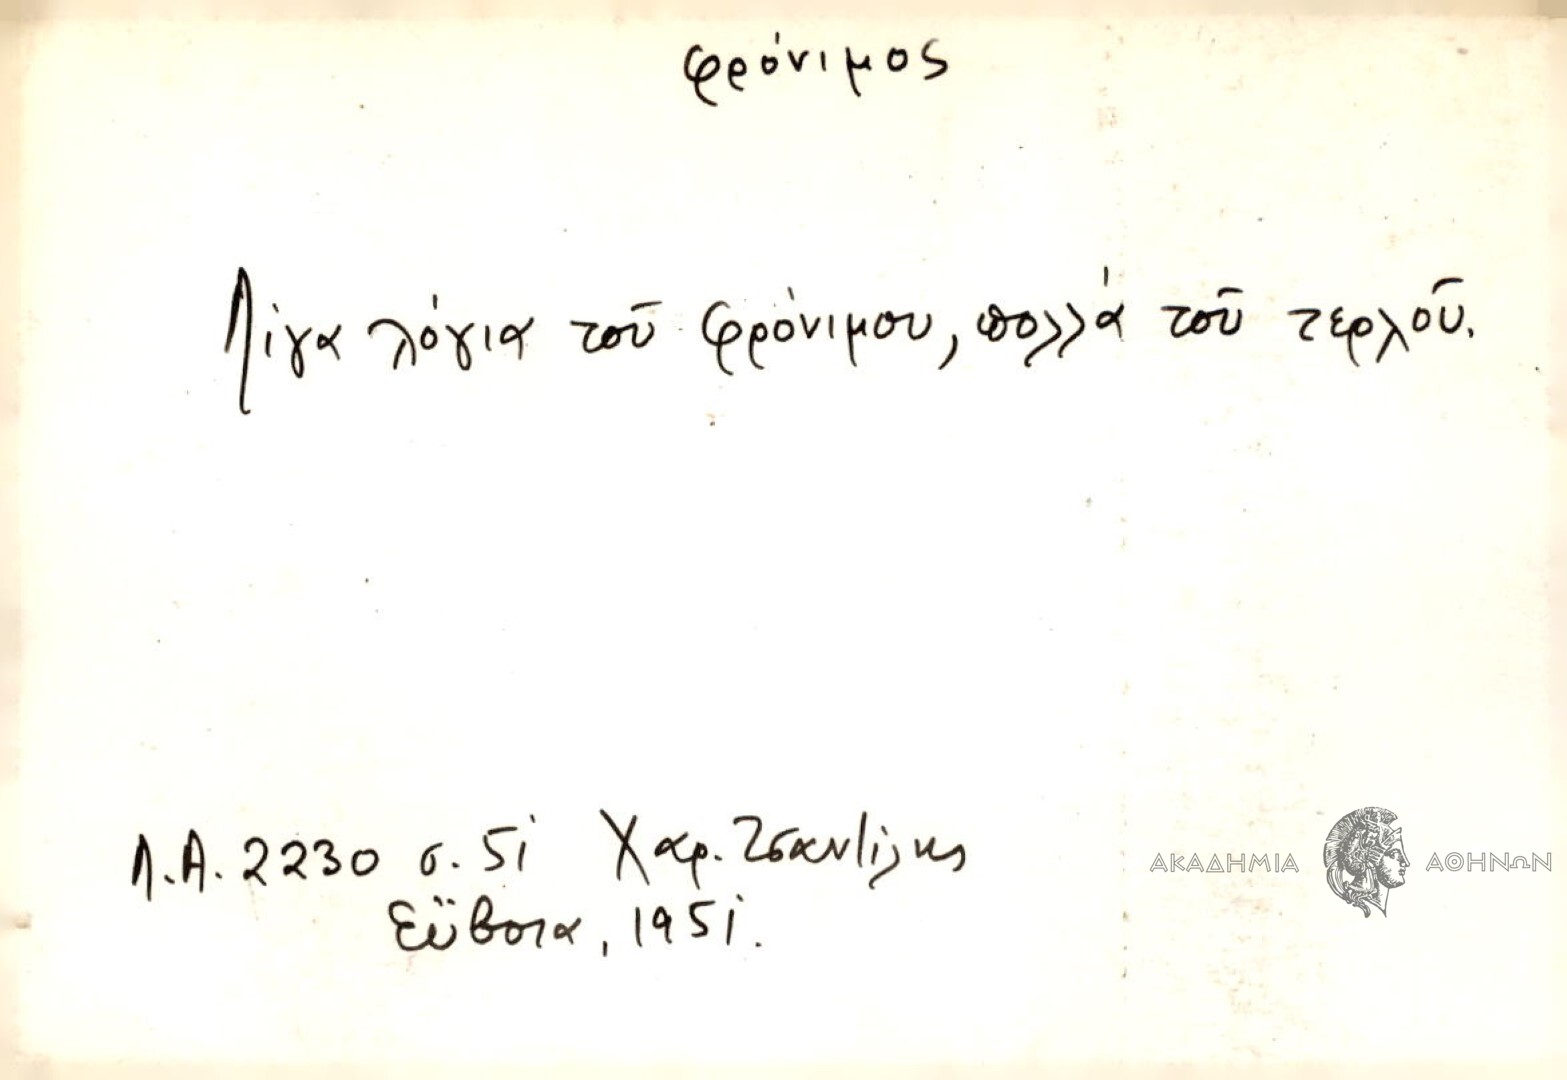 φρόνιμος
Λίγα λόγια τοῦ φρόνιμου, πολλά τοῦ τερλοῦ.
Λ.Α. 2230 σ. 51 Χαρ. Τσαντίλης
Εὔβοια, 1951.
ΑΚΑΔΗΜΙΑ ΑΘΗΝΩΝ